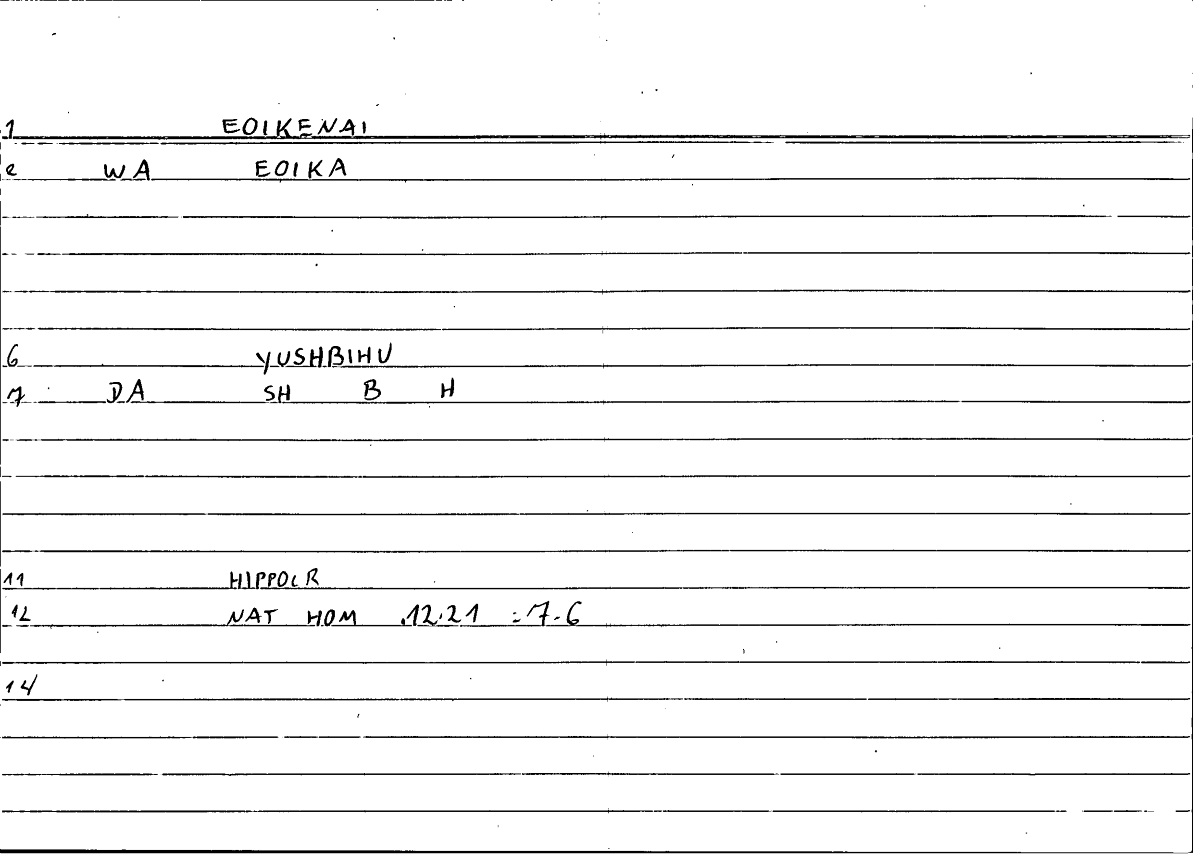 1 EOIKENAI
e WA EOIKA
6 YUSHBIHU
7 DA SH B H
11 HIPPOCR
12 NAT HOM .12.21 :7.6
14